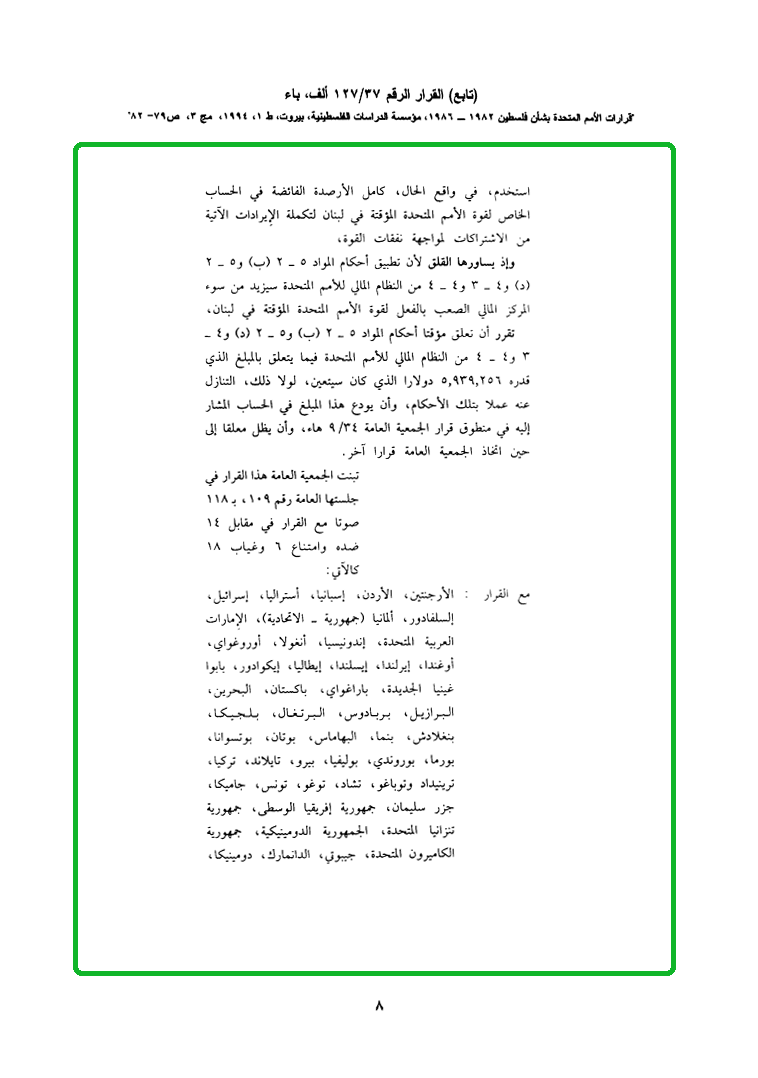 (تابع) القرار الرقم ١٢٧/٣٧ ألف، باء
"قرارات الأمم المتحدة بشأن فلسطين ١٩٨٢ ــ ١٩٨٦، مؤسسة الدراسات الفلسطينية، بيروت، ط ١، ١٩٩٤، مج ٣، ص٧٩- ٨٢"
استخدم، في واقع الحال، كامل الأرصدة الفائضة في الحساب
الخاص لقوة الأمم المتحدة المؤقتة في لبنان لتكملة الإيرادات الآتية
من الاشتراكات لمواجهة نفقات القوة،
وإذ يساورها القلق لأن تطبيق أحكام المواد ٥ ــ ٢ (ب) و٥ ــ ٢
(د) و٤ ــ ٣ و٤ ــ ٤ من النظام المالي للأمم المتحدة سيزيد من سوء
المركز المالي الصعب بالفعل لقوة الأمم المتحدة المؤقتة في لبنان،
تقرر أن تعلق مؤقتا أحكام المواد ٥ ــ ٢ (ب) و٥ ــ ٢ (د) و٤ ــ
٣ و٤ ــ ٤ من النظام المالي للأمم المتحدة فيما يتعلق بالمبلغ الذي
قدره ٥,٩٣٩,٢٥٦ دولارا الذي كان سيتعين، لولا ذلك، التنازل
عنه عملا بتلك الأحكام، وأن يودع هذا المبلغ في الحساب المشار
إليه في منطوق قرار الجمعية العامة ٩/٣٤ هاء، وأن يظل معلقا إلى
حين اتخاذ الجمعية العامة قرارا آخر.
تبنت الجمعية العامة هذا القرار في
جلستها العامة رقم ١٠٩، بـ ١١٨
صوتا مع القرار في مقابل ١٤
ضده وامتناع ٦ وغياب ١٨
كالآتي:
مع القرار : الأرجنتين، الأردن، إسبانيا، أستراليا، إسرائيل،
إلسلفادور، ألمانيا (جمهورية ــ الاتحادية)، الإمارات
العربية المتحدة، إندونيسيا، أنغولا، أوروغواي،
أوغندا، إيرلندا، إيسلندا، إيطاليا، إيكوادور، بابوا
غينيا الجديدة، باراغواي، باكستان، البحرين،
البرازيل، بربادوس، البرتغال، بلجيكا،
بنغلادش، بنما، البهاماس، بوتان، بوتسوانا،
بورما، بوروندي، بوليفيا، بيرو، تايلاند، تركيا،
ترينيداد وتوباغو، تشاد، توغو، تونس، جاميكا،
جزر سليمان، جمهورية إفريقيا الوسطى، جمهورية
تنزانيا المتحدة، الجمهورية الدومينيكية، جمهورية
الكاميرون المتحدة، جيبوتي، الدانمارك، دومينيكا،
٨